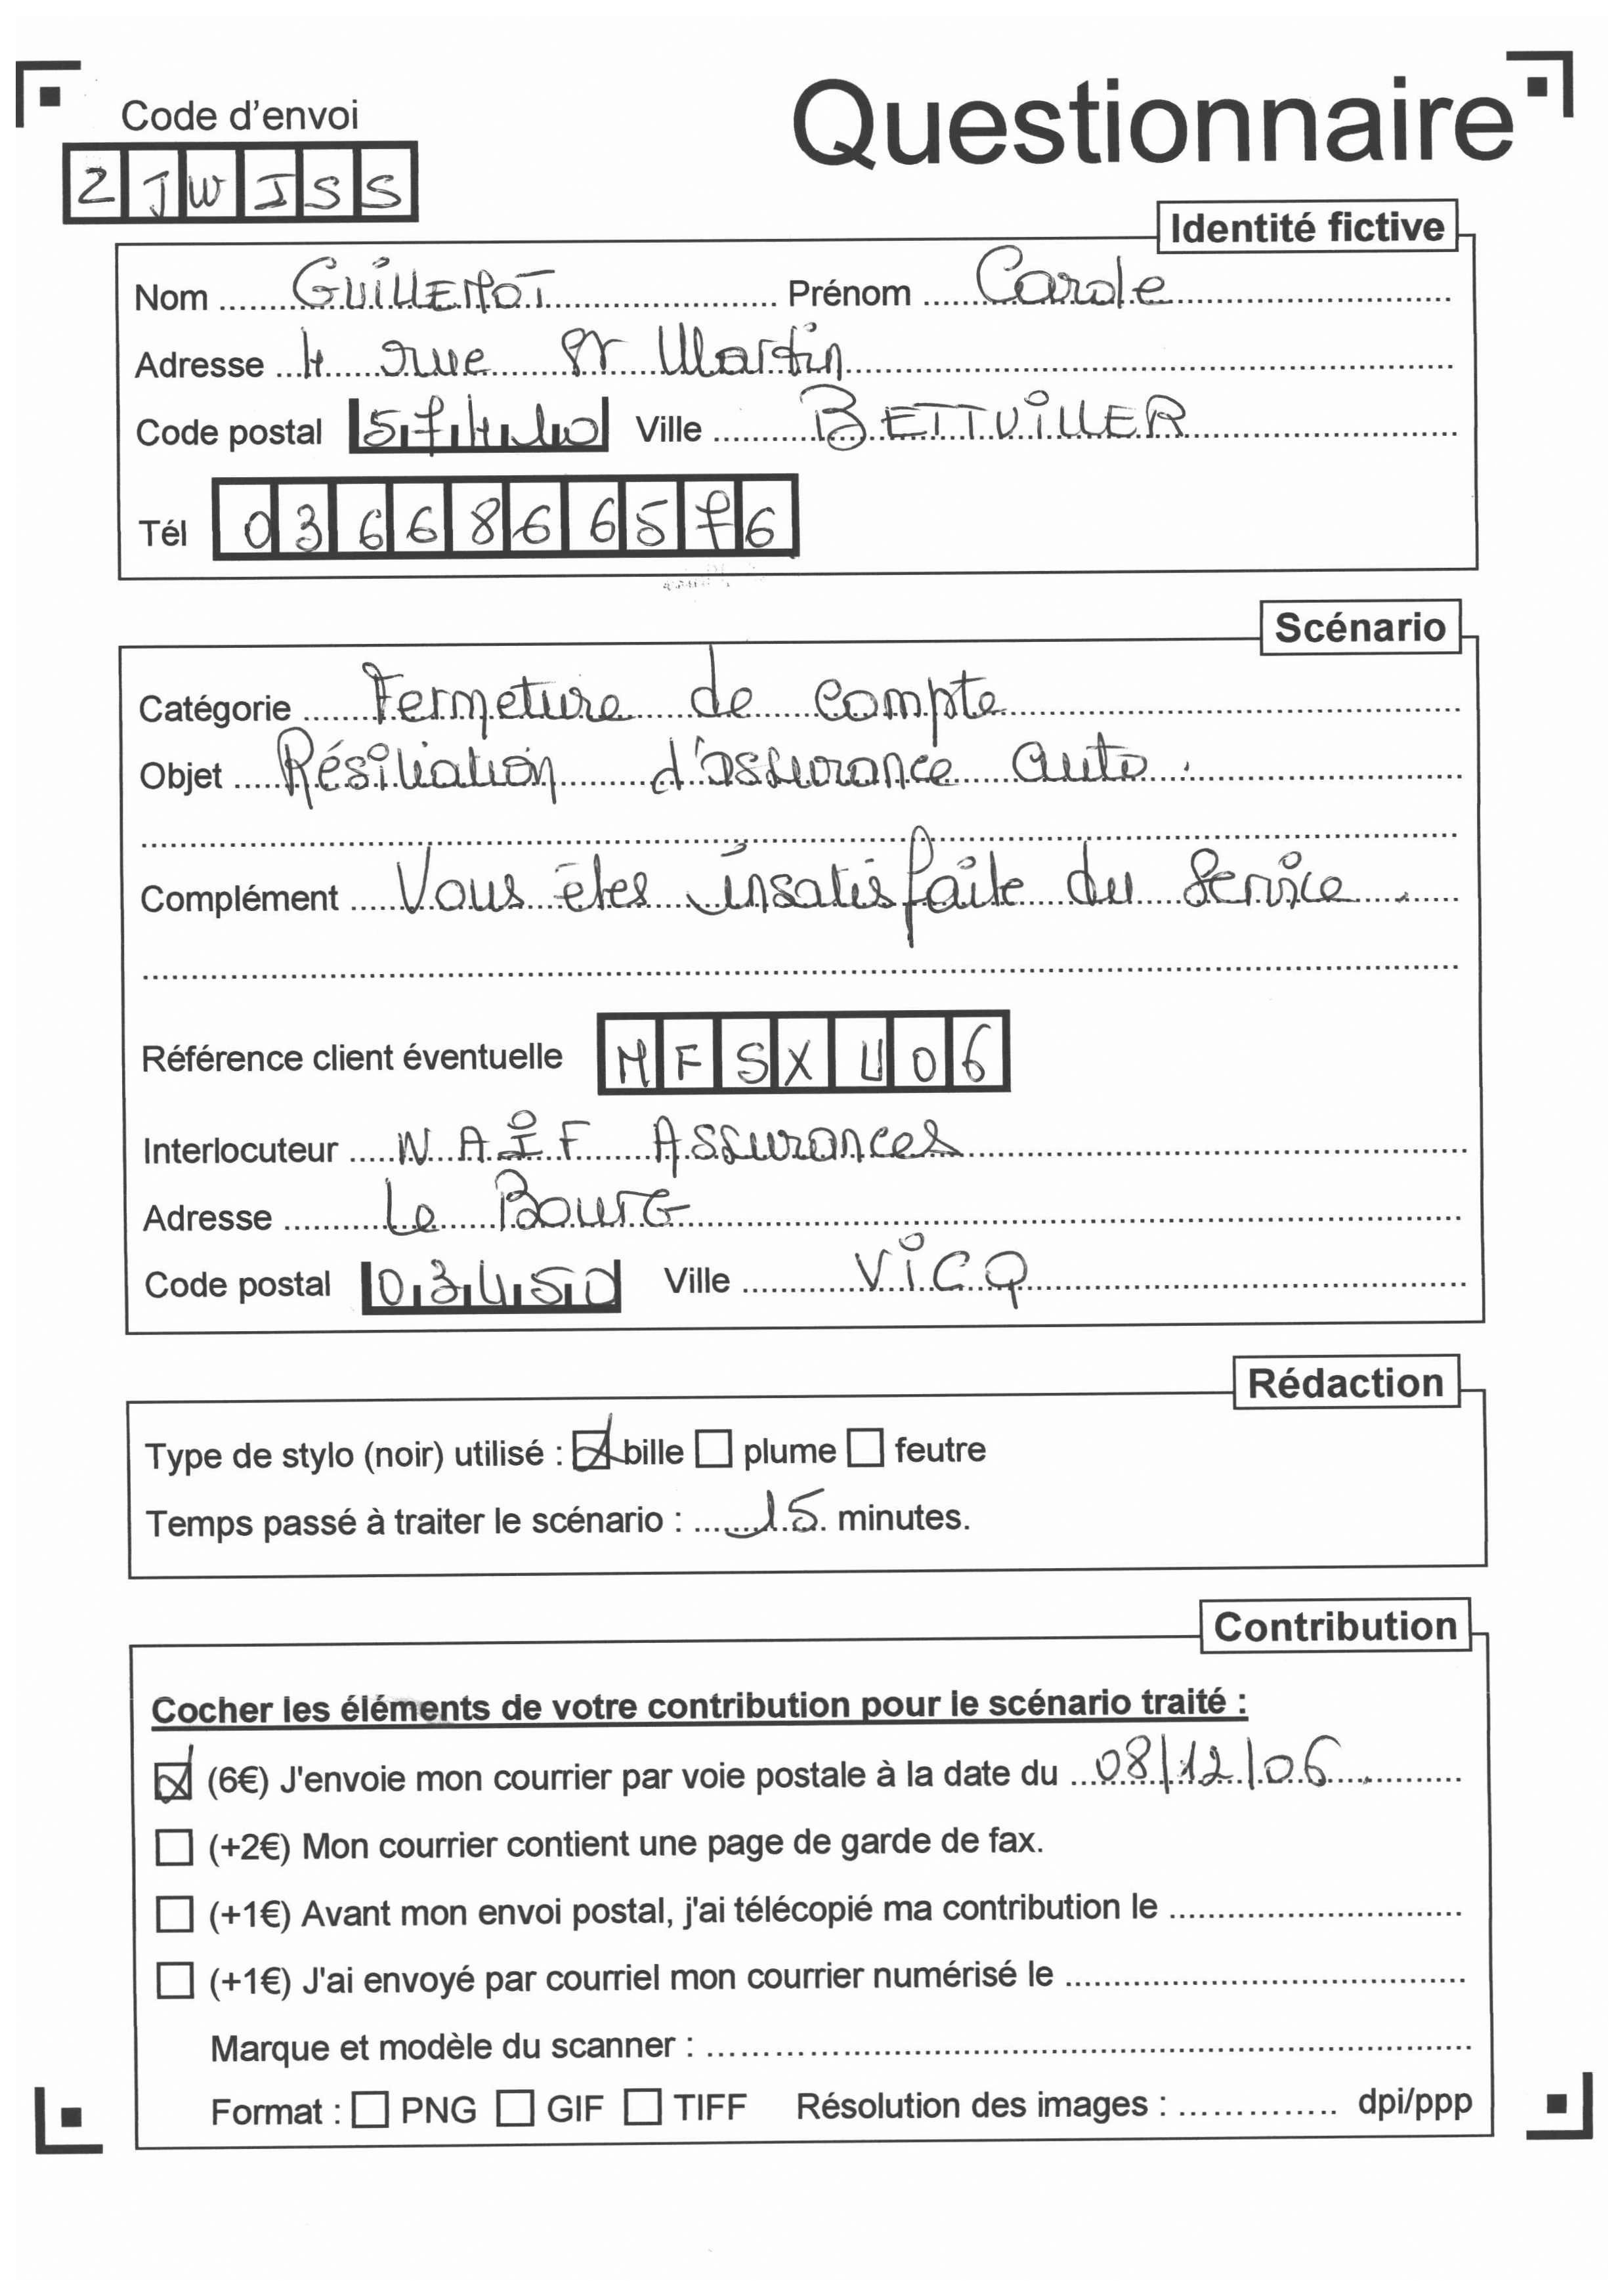 Questionnaire
Code d'envoi
ZJWISS
Identité fictive
Nom GUILLEMOT Prénom Carole
Adresse 4 rue St Martin
Code postal 57410 Ville BETTVILLER
Tél 0366866576
Scénario
Catégorie Fermeture de compte
Objet Résiliation d'assurance auto.
Complément Vous êtes insatisfaite du service.
Référence client éventuelle MFSXU06
Interlocuteur NAIF Assurances
Adresse Le Bourg
Code postal 03450 Ville VICQ
Rédaction
Type de stylo (noir) utilisé : bille plume feutre
Temps passé à traiter le scénario : 15 minutes.
Contribution
Cocher les éléments de votre contribution pour le scénario traité :
(6€) J'envoie mon courrier par voie postale à la date du 08/12/06.
(+2€) Mon courrier contient une page de garde de fax.
(+1€) Avant mon envoi postal, j'ai télécopié ma contribution le
(+1€) J'ai envoyé par courriel mon courrier numérisé le
Marque et modèle du scanner :
Format : PNG GIF TIFF Résolution des images : dpi/ppp